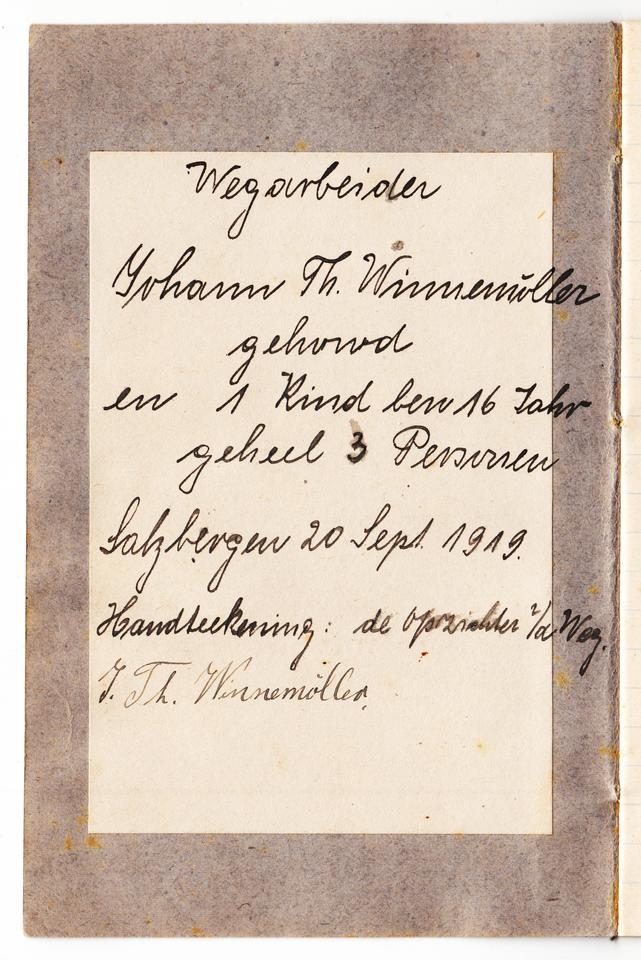 Wegarbeider
Johann Th. Winnemöller
gehowd
en 1 Kind ben 16 Jahr
geheel 3 Personen
Salzbergen 20 Sept. 1919.
Handteekening: de Opzichter v/d Weg.
J. Th. Winnemöller.